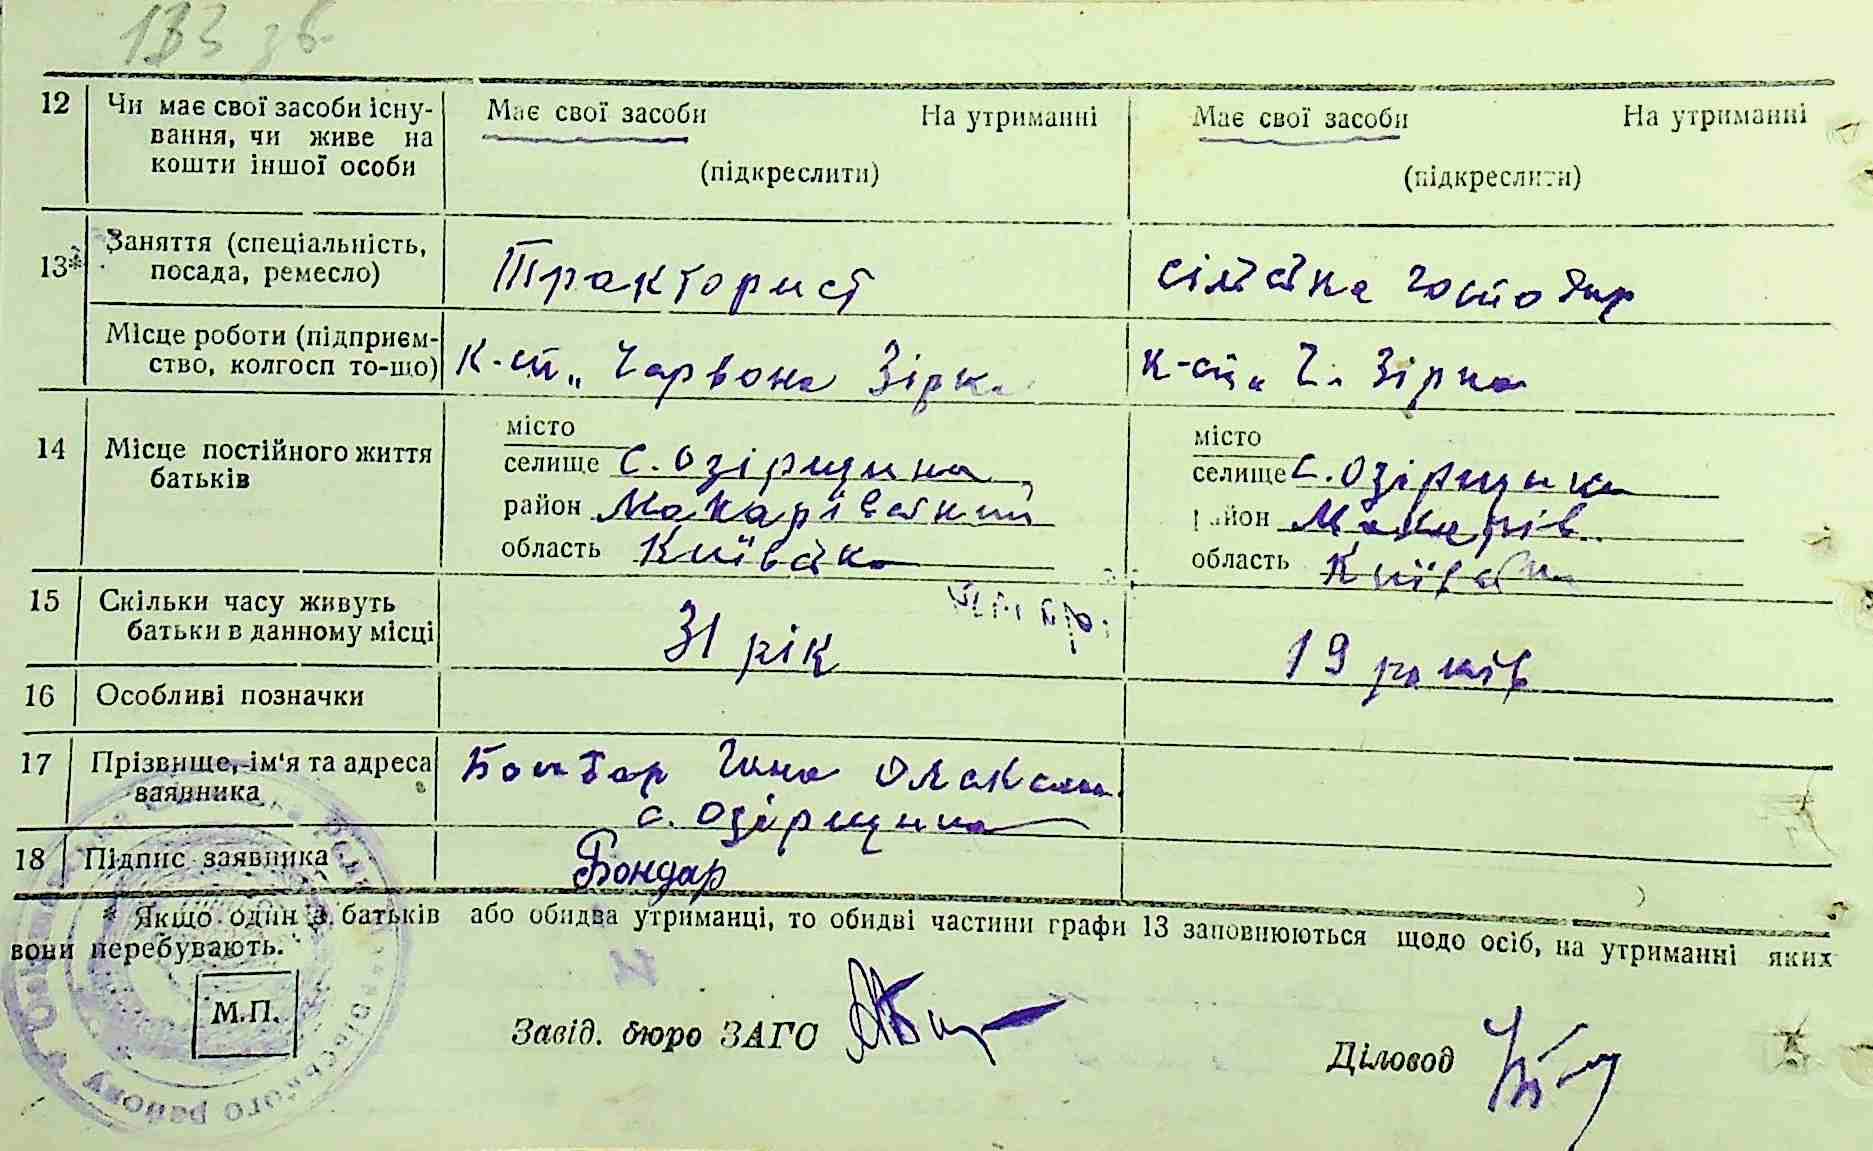 133 зв.
12 Чи має свої засоби існу- Має свої засоби На утриманні Має свої засоби На утриманні
вання, чи живе на
кошти іншої особи (підкреслити) (підкреслити)
13* Заняття (спеціальність,
посада, ремесло) Тракторист сільське господар
Місце роботи (підприєм-
ство, колгосп то-що) К-сп „Червона Зірка К-сп „Ч. Зірка
14 Місце постійного життя
батьків
місто місто
селище с. Озірщина, селище с. Озірщина
район Макарівський район Макарів.
область Київська область Київська
15 Скільки часу живуть
батьки в данному місці 31 рік 19 років
16 Особливі позначки
17 Прізвище, ім'я та адреса Бондар
заявника с. Озірщина
18 Підпис заявника Бондар
* Якщо один з батьків або обидва утриманці, то обидві частини графи 13 заповнюються щодо осіб, на утриманні яких
вони перебувають.
М.П.
Завід. бюро ЗАГС
Діловод